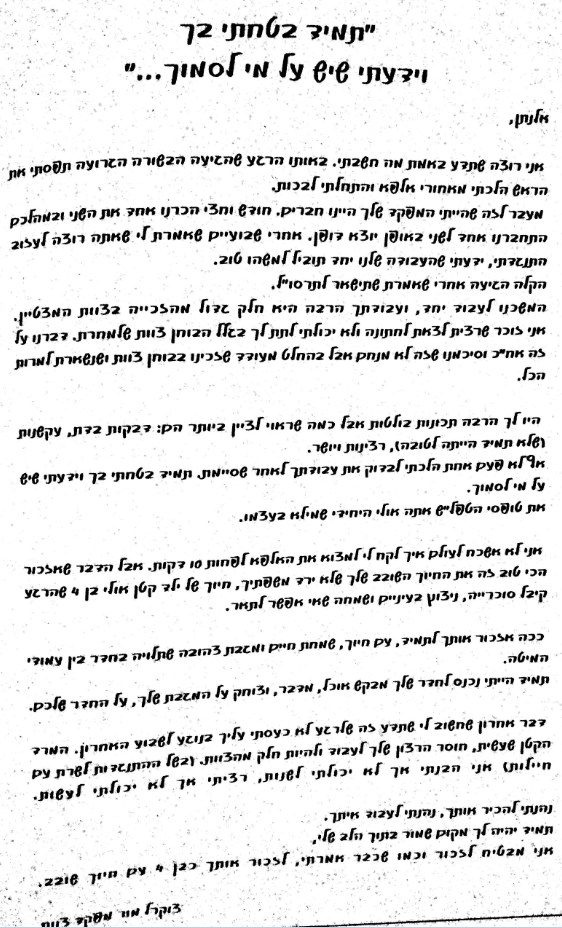 "תמיד בטחתי בך
וידעתי שיש על מי לסמוך..."
אלנתן,
אני רוצה שתדע באמת מה חשבתי. באותו הרגע שהגיעה הבשורה הגרועה תפסתי את
הראש הלכתי מאחורי אלפא והתחלתי לבכות.
מעבר לזה שהייתי המפקד שלך היינו חברים. חודש וחצי הכרנו אחד את השני ובמהלכם
התחברנו אחד לשני באופן יוצא דופן. אחרי שבועיים שאמרת לי שאתה רוצה לעזוב
התנגדתי, ידעתי שהעבודה שלנו יחד תוביל למשהו טוב.
הקלה הגיעה אחרי שאמרת שתישאר לתרסו"ל.
המשכנו לעבוד יחד, ועבודתך הרבה היא חלק גדול מהזכייה בצוות המצטיין.
אני זוכר שרצית לצאת לחתונה ולא יכולתי לתת לך בגלל הבוחן צוות שלמחרת. דברנו על
זה אח"כ וסיכמנו שזה לא מנחם אבל בהחלט מעודד שזכינו בבוחן צוות ושנשארת למרות
הכל.
היו לך הרבה תכונות בולטות אבל כמה שראוי לציין ביותר הם: דבקות בדת, עקשנות
(שלא תמיד הייתה לטובה), רצינות ויושר.
אף לא פעם אחת הלכתי לבדוק את עבודתך לאחר שסיימת. תמיד בטחתי בך וידעתי שיש
על מי לסמוך.
את טופסי הטפל"ש אתה אולי היחידי שמילא בעצמו.
אני לא אשכח לעולם איך לקח לי למצוא את האלפא לפחות 10 דקות. אבל הדבר שאזכור
הכי טוב זה את החיוך השובב שלך שלא ירד משפתיך, חיוך של ילד קטן אולי בן 4 שהרגע
קיבל סוכרייה, ניצוץ בעיניים ושמחה שאי אפשר לתאר.
ככה אזכור אותך לתמיד, עם חיוך, שמחת חיים ומגבת צהובה שתלויה בחדר בין עמודי
המיטה.
תמיד הייתי נכנס לחדר שלך מבקש אוכל, מדבר, וצוחק על המגבת שלך, על החדר שלכם.
דבר אחרון שחשוב לי שתדע זה שלרגע לא כעסתי עליך בנוגע לשבוע האחרון. המרד
הקטן שעשית, חוסר הרצון שלך לעבוד ולהיות חלק מהצוות. (בשל ההתנגדות לשרת עם
חיילות) אני הבנתי אך לא יכולתי לשנות, רציתי אך לא יכולתי לעשות.
נהנתי להכיר אותך, נהנתי לעבוד איתך.
תמיד יהיה לך מקום שמור בתוך הלב שלי,
אני מבטיח לזכור וכמו שכבר אמרתי, לזכור אותך כבן 4 עם חיוך שובב.
צוקרל מור מפקד צוות